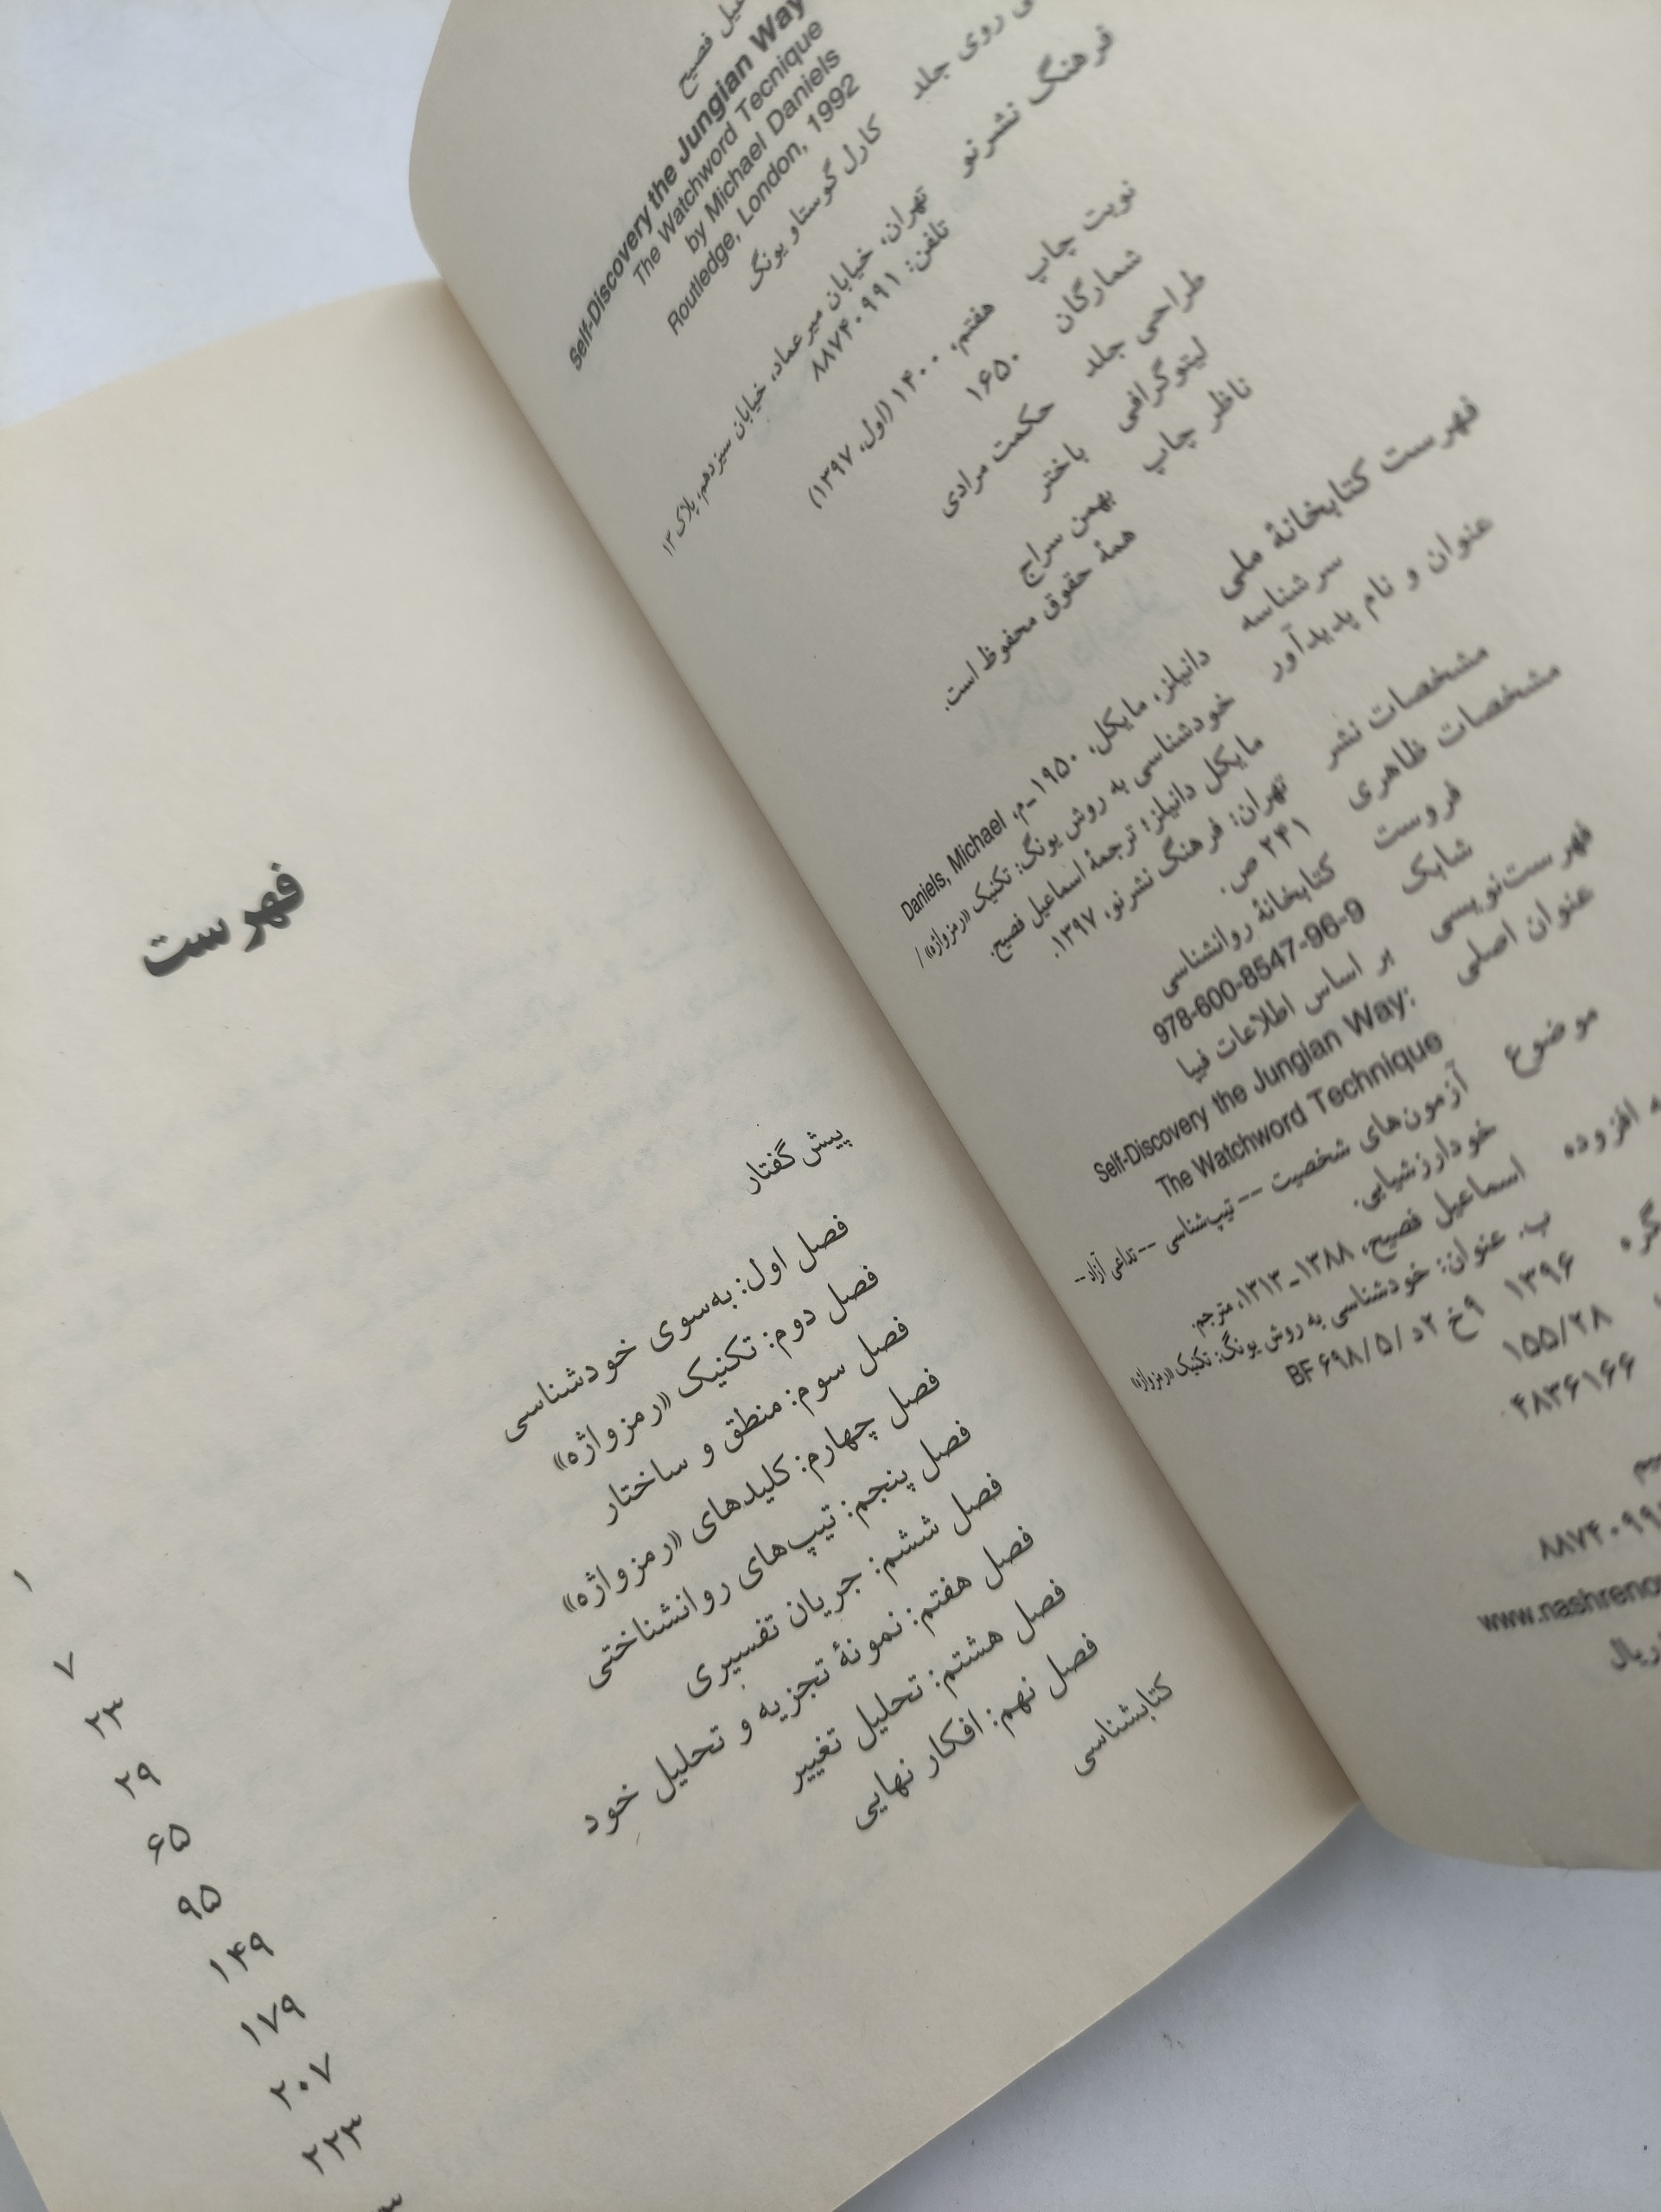 فصیح
Self-Discovery the Jungian Way
The Watchword Tecnique
by Michael Daniels
Routledge, London, 1992
روی جلد کارل گوستاو یونگ
فرهنگ نشرنو تهران، خیابان میرعماد، خیابان سیزدهم، پلاک ۱۳
تلفن: ۸۸۷۴۰۹۹۱
نوبت چاپ هفتم، ۱۴۰۰ (اول، ۱۳۹۷)
شمارگان ۱۶۵۰
طراحی جلد حکمت مرادی
لیتوگرافی باختر
ناظر چاپ بهمن سراج
همهٔ حقوق محفوظ است.
فهرست کتابخانهٔ ملی
سرشناسه دانیلز، مایکل، ۱۹۵۰-م، Daniels, Michael
عنوان و نام پدیدآور خودشناسی به روش یونگ: تکنیک «رمزواژه» /
مایکل دانیلز؛ ترجمهٔ اسماعیل فصیح.
مشخصات نشر تهران: فرهنگ نشرنو، ۱۳۹۷.
مشخصات ظاهری ۲۴۱ ص.
فروست کتابخانهٔ روانشناسی
شابک 978-600-8547-96-9
فهرست‌نویسی بر اساس اطلاعات فیپا
عنوان اصلی Self-Discovery the Jungian Way:
The Watchword Technique
موضوع آزمون‌های شخصیت -- تیپ‌شناسی -- تداعی آزاد--
خودارزشیابی.
افزوده اسماعیل فصیح، ۱۳۸۸-۱۳۱۳، مترجم.
ب. عنوان: خودشناسی به روش یونگ: تکنیک «رمزواژه»
گره ۱۳۹۶ ۹خ ۲د/۵/BF۶۹۸
۱۵۵/۲۸
۴۸۳۶۱۶۶
۸۸۷۴۰۹۹
www.nashreno
ریال
فهرست
پیش‌گفتار ۱
فصل اول: به‌سوی خودشناسی ۷
فصل دوم: تکنیک «رمزواژه» ۲۳
فصل سوم: منطق و ساختار ۲۹
فصل چهارم: کلیدهای «رمزواژه» ۶۵
فصل پنجم: تیپ‌های روانشناختی ۹۵
فصل ششم: جریان تفسیری ۱۴۹
فصل هفتم: نمونهٔ تجزیه و تحلیل خود ۱۷۹
فصل هشتم: تحلیل تغییر ۲۰۷
فصل نهم: افکار نهایی ۲۲۳
کتابشناسی